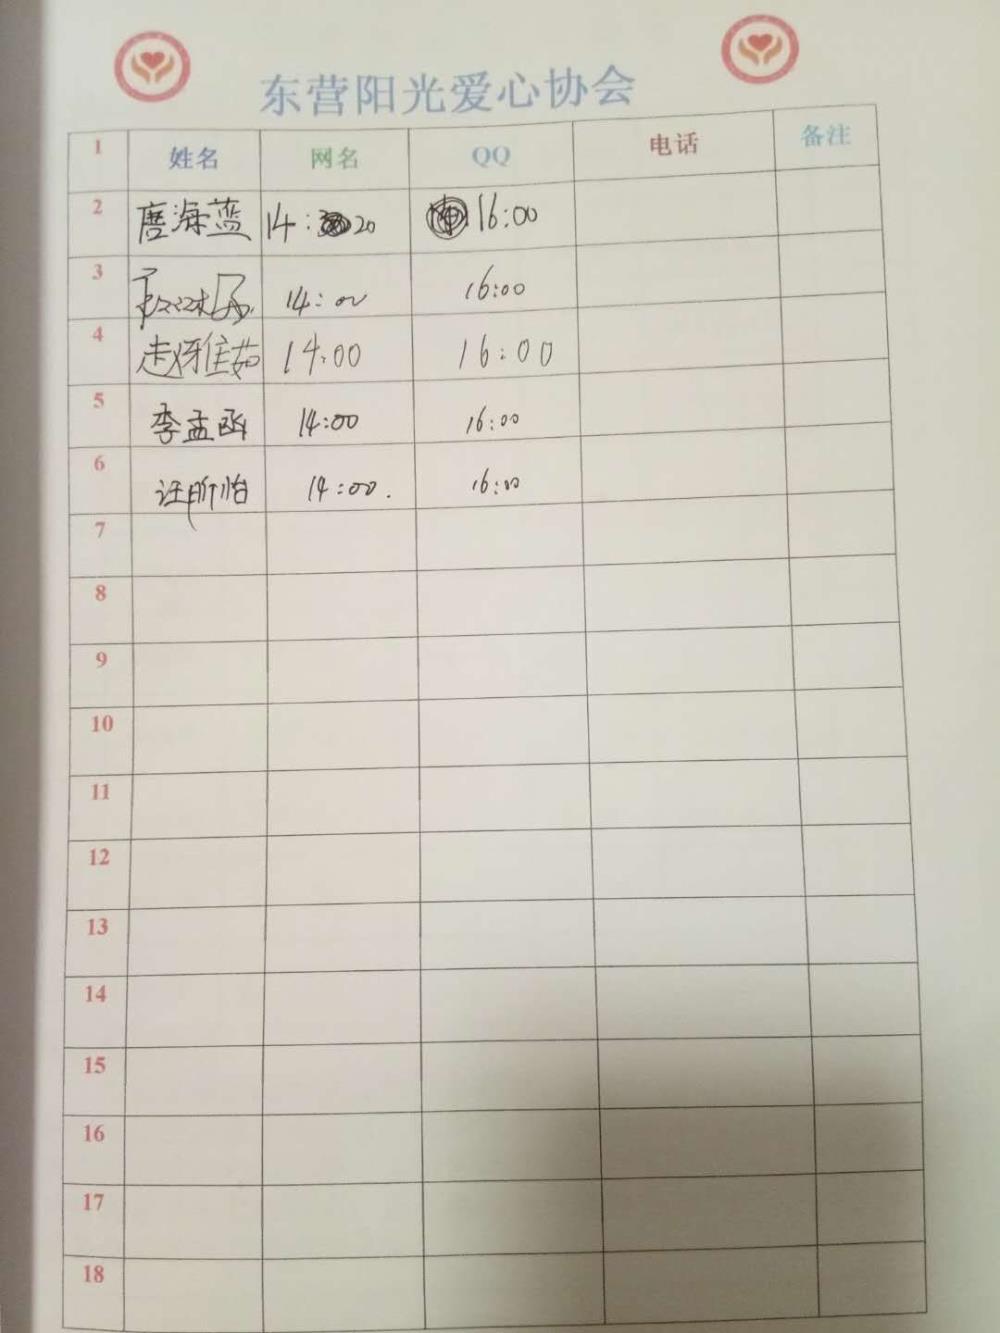 东营阳光爱心协会
1 姓名 网名 QQ 电话 备注
2 唐海蓝 14:20 16:00
3 14:00 16:00
4 赵雅茹 14:00 16:00
5 李孟函 14:00 16:00
6 汪昕怡 14:00. 16:00
7
8
9
10
11
12
13
14
15
16
17
18